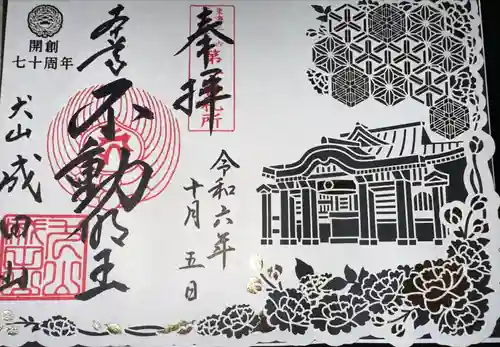 奉拝
令和六年
十月五日
本尊不動明王
開創
七十周年
犬山成田山